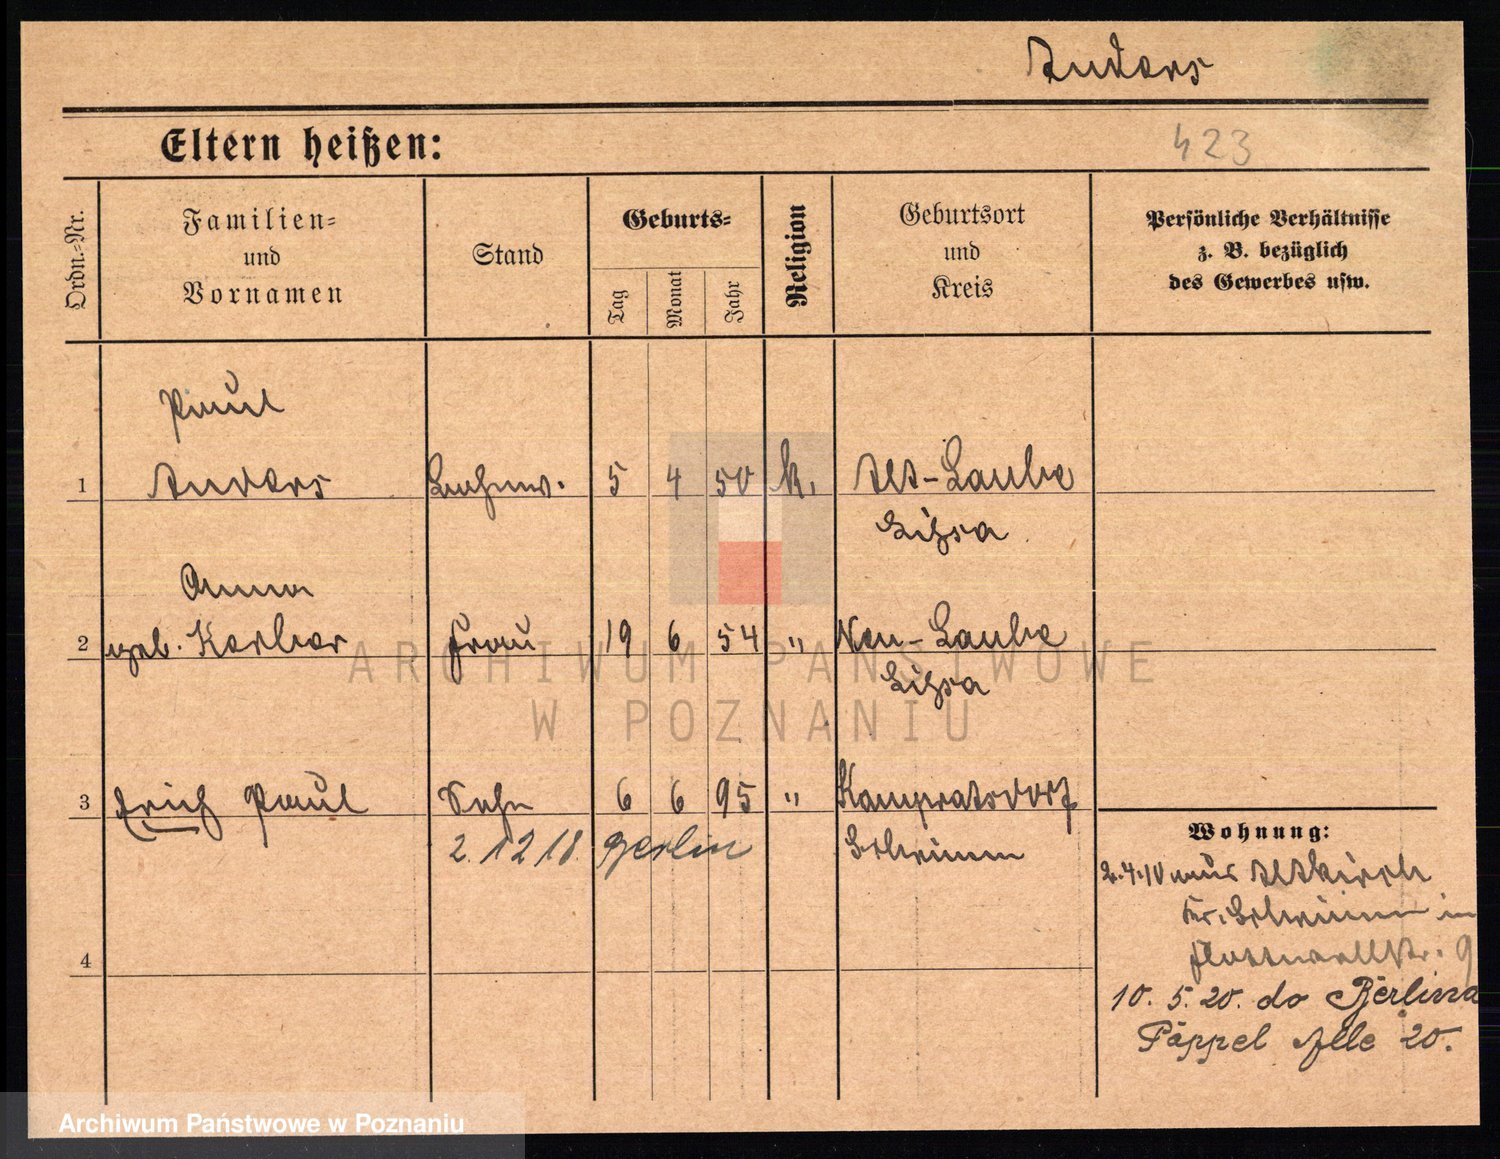 Anders
Eltern heißen:
423
Ordn.-Nr.
Familien-
und
Vornamen
Stand
Geburts-
Tag
Monat
Jahr
Religion
Geburtsort
und
Kreis
Persönliche Verhältnisse
z. B. bezüglich
des Gewerbes usw.
Paul
1 Anders 5 4 50 k. Alt-Laube
Lissa
Anna
2 geb. Korber Frau 19 6 54 " Neu-Laube
Lissa
3 Erich Paul Sohn 6 6 95 " Kampratsdorf
2. 12 18. Berlin Schrimm
Wohnung:
2.4.10 aus Altkirch
Kr. Schrimm in
Flottwellstr. 9
4
10. 5. 20. do Berlina
Pappel Alle 20.
ARCHIWUM PAŃSTWOWE
W POZNANIU
Archiwum Państwowe w Poznaniu